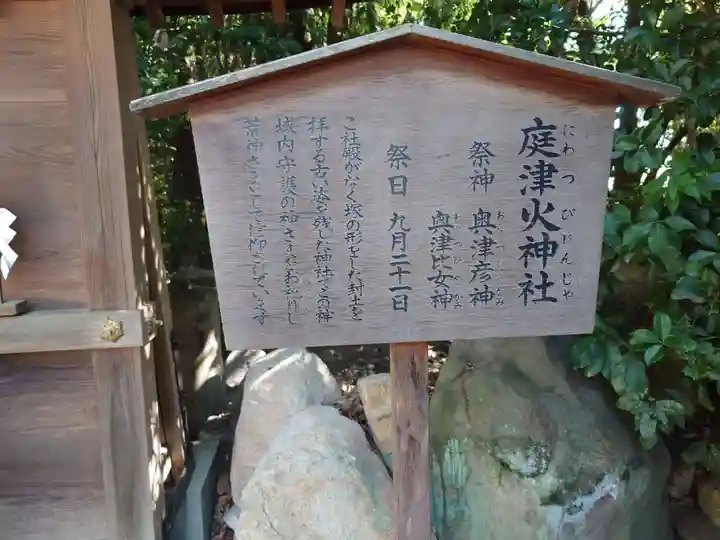 庭津火神社
にわつひじんじゃ
祭神 奥津彦神
おくつひこのかみ
奥津比女神
おくつひめのかみ
祭日 九月二十一日
ご社殿がなく塚の形をした封土を
拝する古い姿を残した神社でその神
域内守護の神さまとおあがめし
荒神さまとして信仰されています